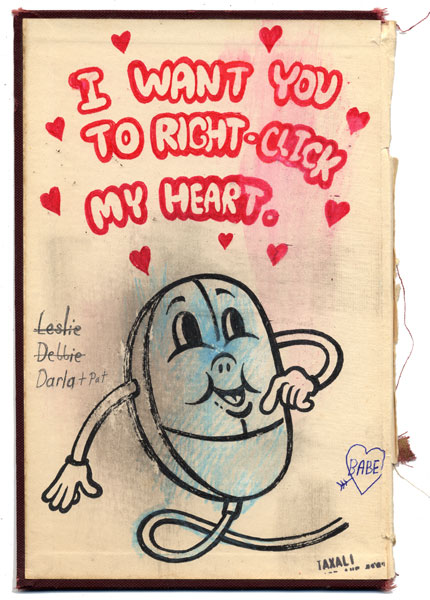 I WANT YOU
TO RIGHT-CLICK
MY HEART.
Leslie
Debbie
Darla + Pat
BABE
TAXALI